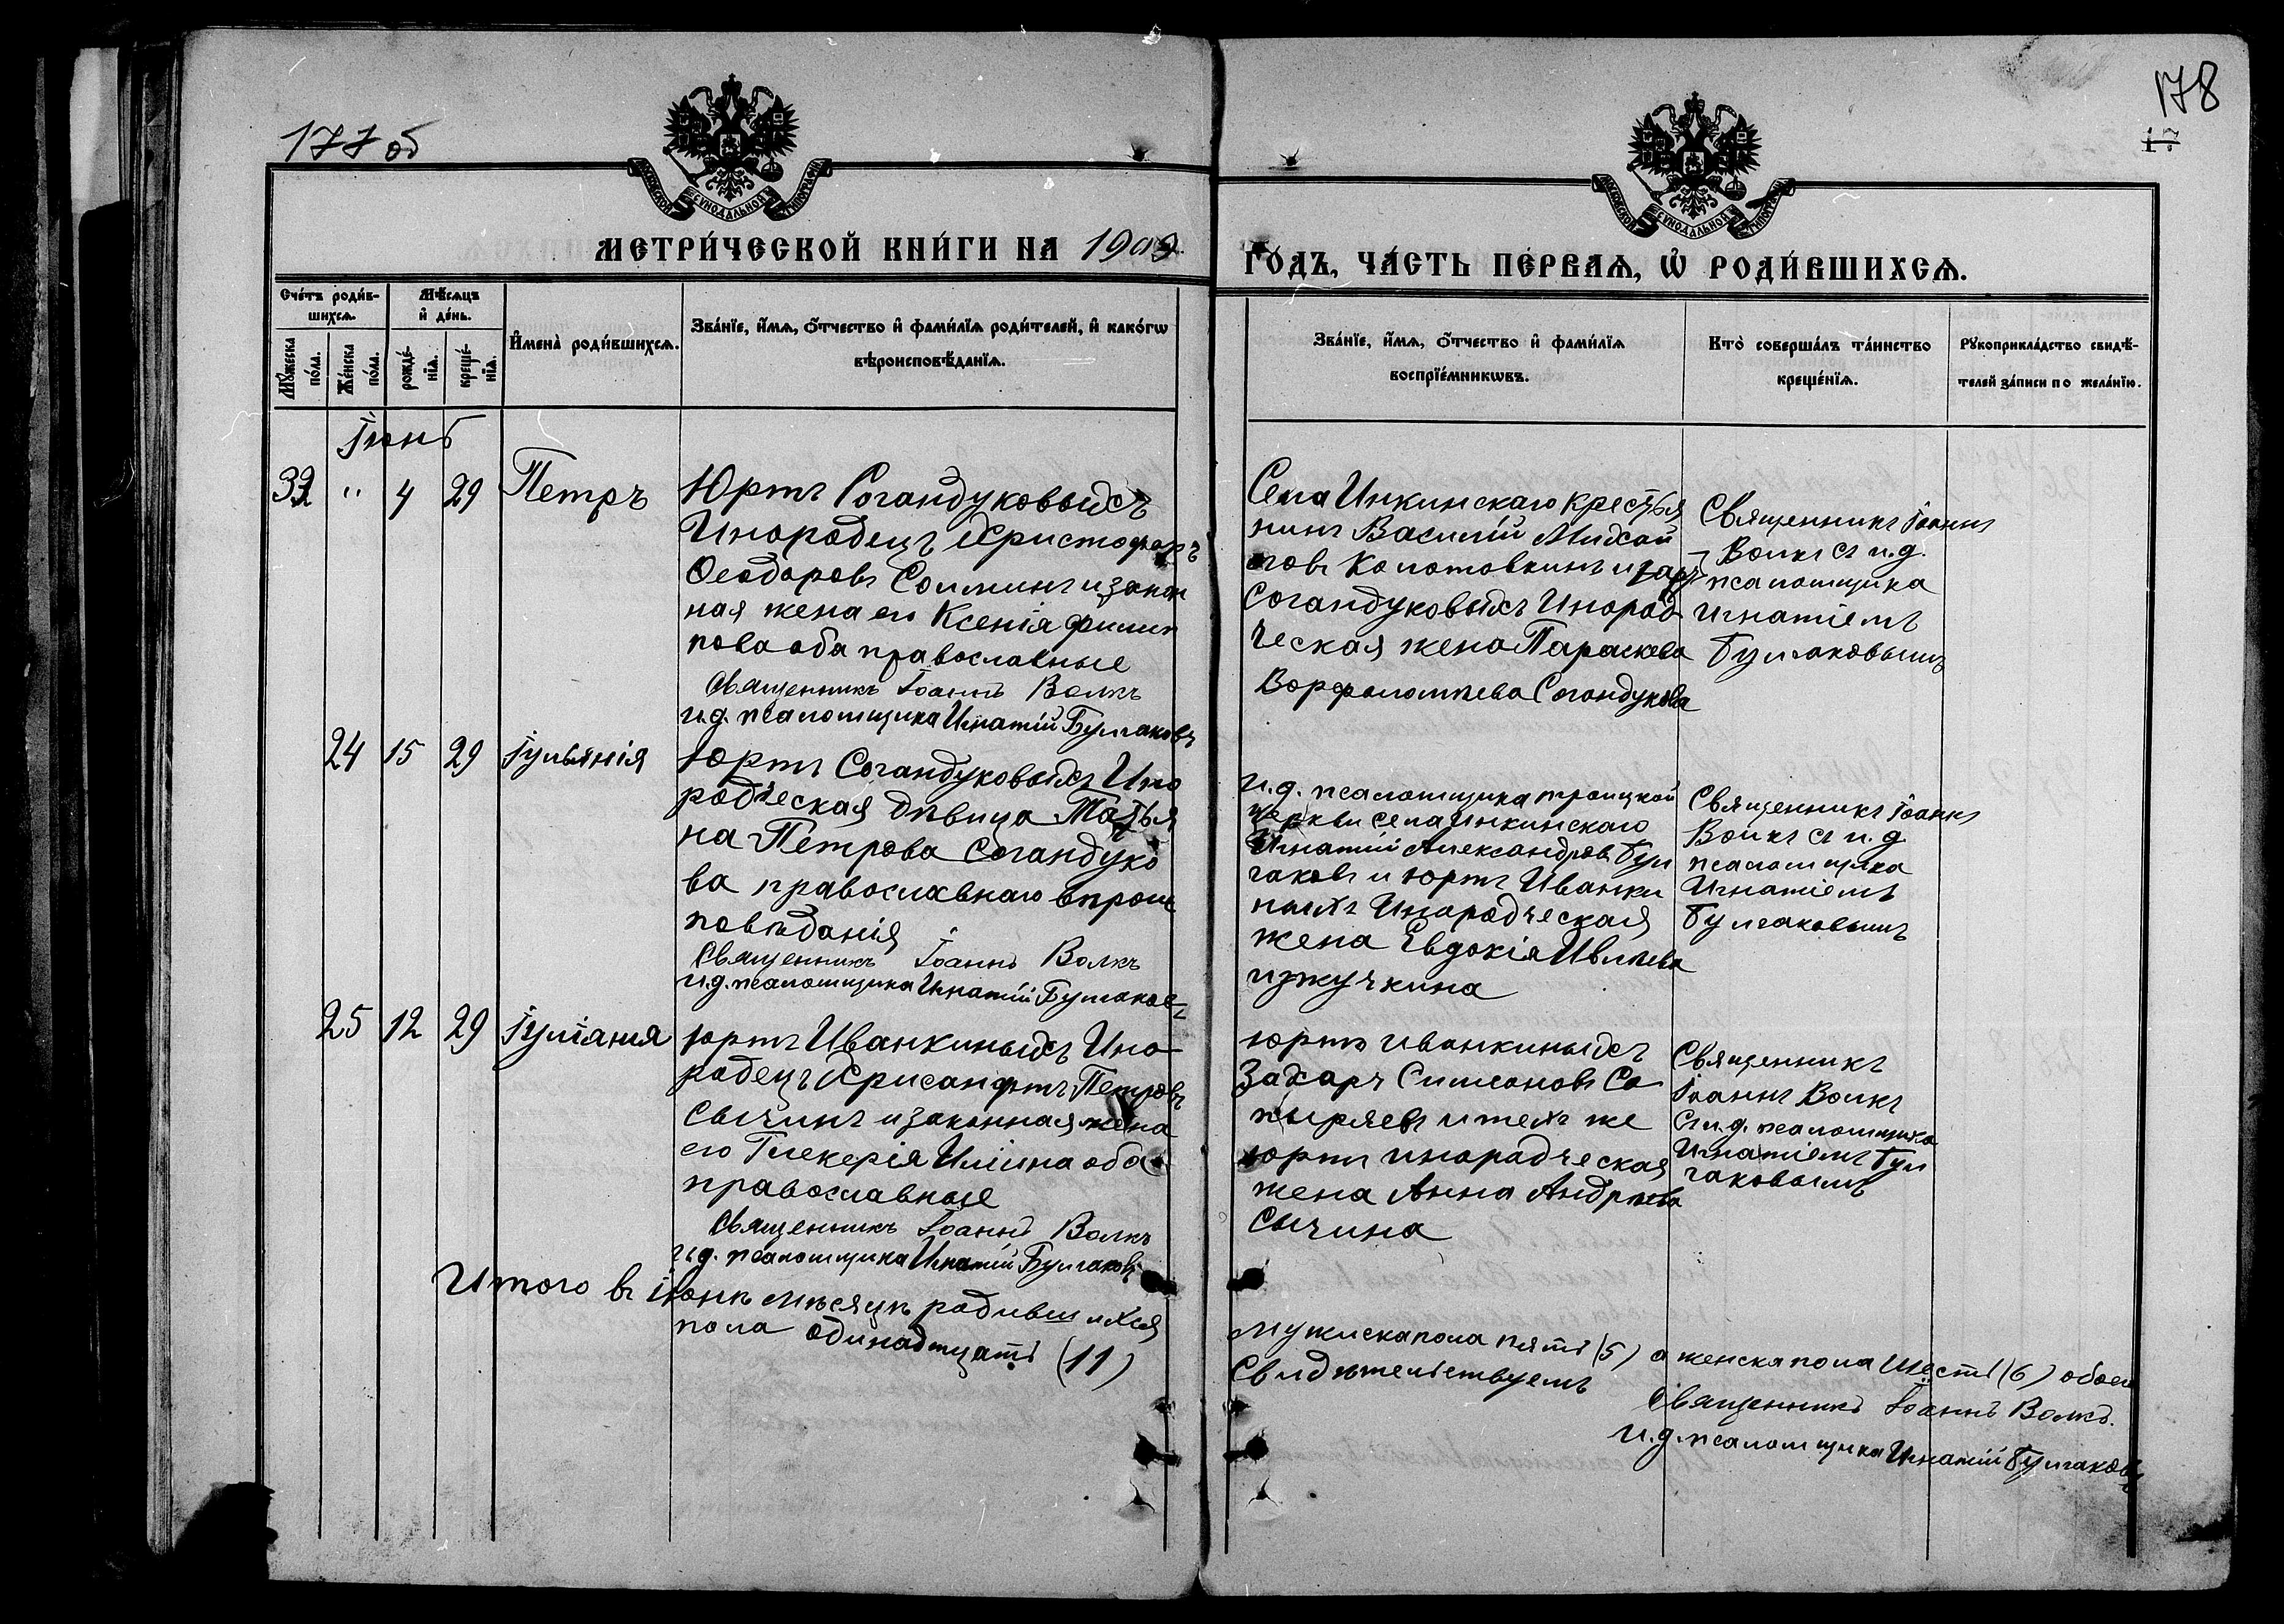 177 об
178
МОСКОВСКОЙ СѴНОДАЛЬНОЙ ТИПОГРАФІИ
МОСКОВСКОЙ СѴНОДАЛЬНОЙ ТИПОГРАФІИ
МЕТРИ́ЧЕСКОЙ КНИ́ГИ НА 1909
ГО́ДЪ, ЧА́СТЬ ПЕ́РВАѦ, Ѡ҆ РОДИ́ВШИХСѦ.
Сче́тъ роди́в-
шихсѧ.
Мѣ́сѧцъ
и҆ де́нь.
Мꙋ́жеска
по́ла.
Же́нска
по́ла.
рожде́-
нїѧ.
креще́-
нїѧ.
И҆мена̀ роди́вшихсѧ.
Зва́нїе, и҆́мѧ, ѻ҆́тчество и҆ фами́лїѧ роди́телей, и҆ како́гѡ
вѣроисповѣ́данїѧ.
Зва́нїе, и҆́мѧ, ѻ҆́тчество и҆ фами́лїѧ
воспрїе́мникѡвъ.
Кто̀ соверша́лъ та́инство
креще́нїѧ.
Рꙋкоприкла́дство свидѣ́-
телей за́писи по жела́нїю.
Іюнь
32 " 4 29 Петръ
Юртъ Согандуковыхъ
Инородецъ Христофоръ
Ѳеодоровъ Солминъ и закон
ная жена его Ксенія Филип
пова оба православные
Священникъ Іоаннъ Волкъ
и.д. псаломщика Игнатій Булгаковъ
Села Инкинскаго крестья
нинъ Василій Михай
ловъ Колотовкинъ и юртъ
Согандуковыхъ Инород
ческая жена Параскева
Ворфоломпева Согандукова
Священникъ Іоаннъ
Волкъ съ и.д.
псаломщика
Игнатіемъ
Булгаковымъ
24 15 29 Іульянія
Юртъ Согандуковыхъ Ино
родческая дѣвица Татья
на Петрова Согандуко
ва православнаго вѣроис
повѣданія
Священникъ Іоаннъ Волкъ
и.д. псаломщика Игнатій Булгаковъ
и.д. псаломщика троицкой
церкви села Инкинскаго
Игнатій Александровъ Бул
гаковъ и юртъ Иванки
ныхъ Инородческая
жена Евдокія Ивлева
Изжучкина
Священникъ Іоаннъ
Волкъ съ и.д
псаломщика
Игнатіемъ
Булгаковымъ
25 12 29 Іуліания
юртъ Иванкиныхъ Ино
родецъ Хрисанфъ Петровъ
Сычинъ и законная жена
его Гликерія Ильина оба
православные
Священникъ Іоаннъ Волкъ
и.д. псаломщика Игнатій Булгаковъ
юртъ иванкиныхъ
Захаръ Симеоновъ Со
пыряевъ и техъ же
юртъ инородческая
жена Анна Андрѣева
Сычина
Священникъ
Іоаннъ Волкъ
съ и.д. псаломщика
Игнатіемъ Бул
гаковымъ
Итого въ іюнѣ мѣсяцѣ родившихся
мужиска пола пять (5) а женска пола шесть (6) обоего
пола одинадцать (11)
Свидѣтельствуемъ
Священникъ Іоаннъ Волкъ.
и.д. псаломщика Игнатій Булгаковъ